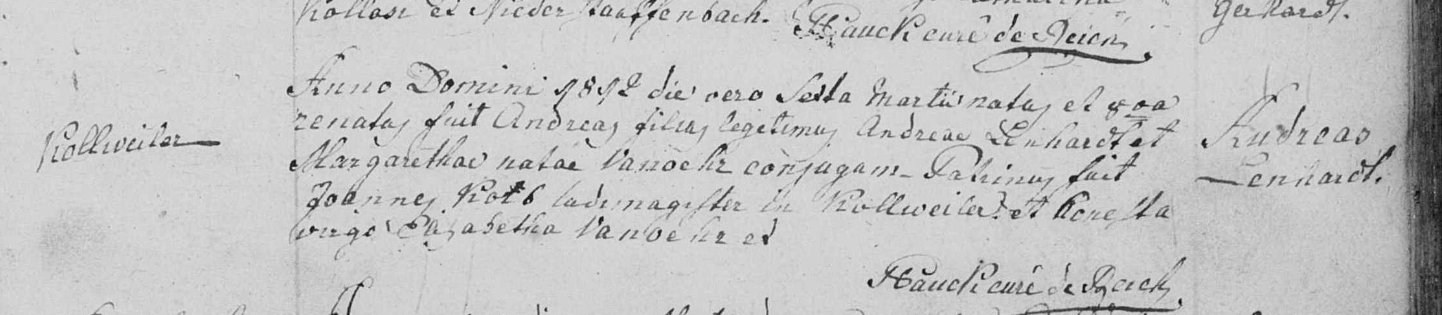 Kollasi et Niederstauffenbach.
Hauck curé de Reich
Gerhardt.
Kollweiler
Anno Domini 1812 die vero Sexta Martii natus et 8va
renatus fuit Andreas filius legitimus Andreae Lenhardt et
Margarethae natae Vanoehr conjugam. Patrinus fuit
Joannes Kolb ludimagister in Kollweiler et honesta
virgo Elisabetha Vanoehr ed
Hauck curé de Reich
Andreas
Lenhardt.